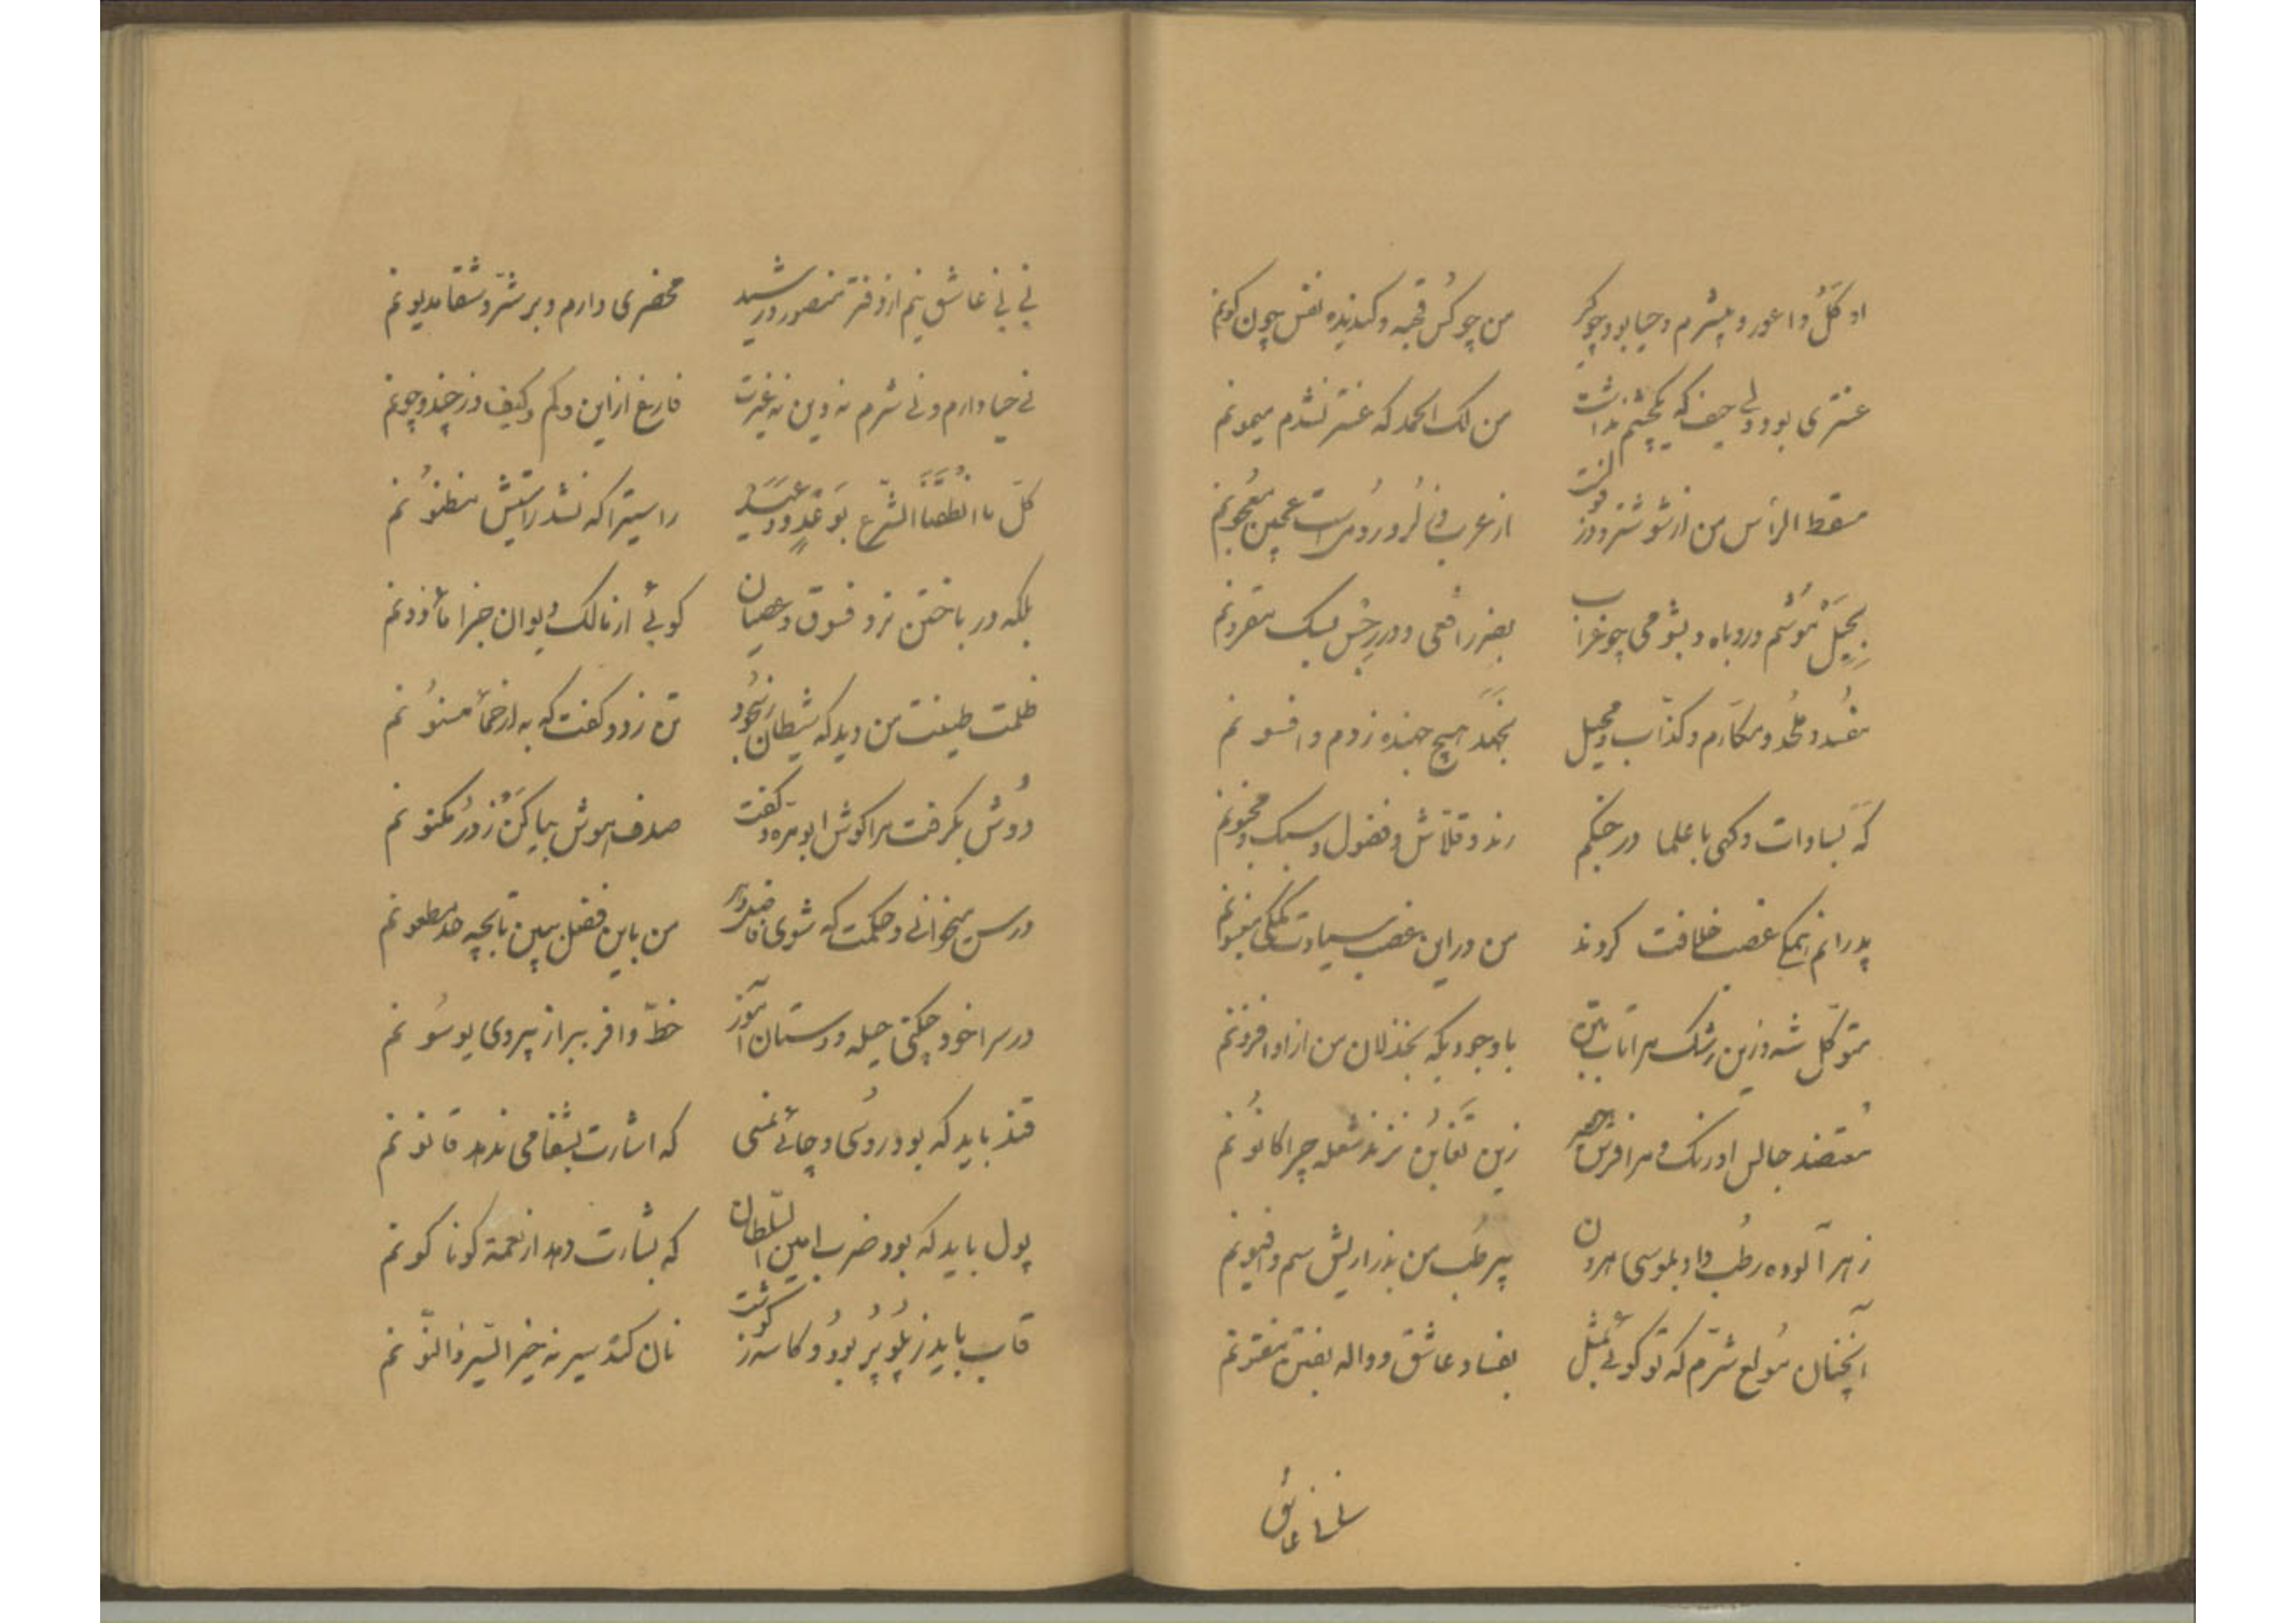 او کَلّ و اعور و بیشرم و حیا بود چو کر
من چو کس قحبه و گندیده نفس چون کونم
عنتری بود ولی حیف که یکچشم نداشت
من لک الحمد که عنتر نشدم میمونم
مسقط الرأس من از شوشتر و دز
از عرب و لُر و رُومی است عجین معجونم
بحیَل مُوشم و روباه و بشومی چو غراب
بضرر افعی و در رجس سگ مقرونم
مفسد و ملحُد و مکارم و کذّاب و محیل
بجهَد هیچ جهنده ز دم و افسونم
گه بسادات و گهی با علما در جنگم
رند و قلاش و فضول و سبک و مجنونم
پدرانم همگی غصب خلافت کردند
من در این غصب سیادت همگی مغبونم
متوکّل شه و زین رشک مرا تاب و تبّ
با وجودیکه بخذلان من از او افزونم
مُعتضد جالس اورنگ و مرا فرش حصیر
زین تَغابُن نزند شعله چرا کانُونم
زهر آلوده رطب داد بموسی هرون
پیر طب من بذراریش سم و افیونم
آنچنان مُولع شرّم که تو گوئی بمثل
بفساد عاشق و واله بفتن مفتونم
نی نی عاشق
نی نی عاشق نیم از دفتر منصور رشید
محضری دارم و بر شرّ و شقا مدیونم
نی حیا دارم و نی شرم نه دین نه غیرت
فارغ از این و کم و کیف و ز چند و چونم
کلّ ما الشّرع
راستی را که نشد راستیش مظنُونم
بلکه در باختن نرد فسوق و عصیان
گوئی از مالک دیوان جزا مأذونم
ظلمت طینت من دید که شیطان رنجُور
تن زد و گفت که به از حمأ مسنُونم
دُوش بگرفت مرا گوش ابو مره و گفت
صدف هوش بیا کن ز دُر مکنونم
درس میخوانی و حکمت که شوی فاضل دور
من باین فضل ببین تا بچه حد مطعونم
در سر خود چکنی حیله و دستان آموز
خطّ وافر ببر از پیروی یوسُونم
قند باید که بود روُسی و چائی یمنی
که اشارت بشفا می ندهد قانونم
پول باید که بود ضرب امین السّلطان
که بشارت دهد از نعمة گوناگونم
قاب باید ز پلو پُر بوُد و کاسه ز گوشت
نان گند سیر نه خیر السّیر ذا النّونم